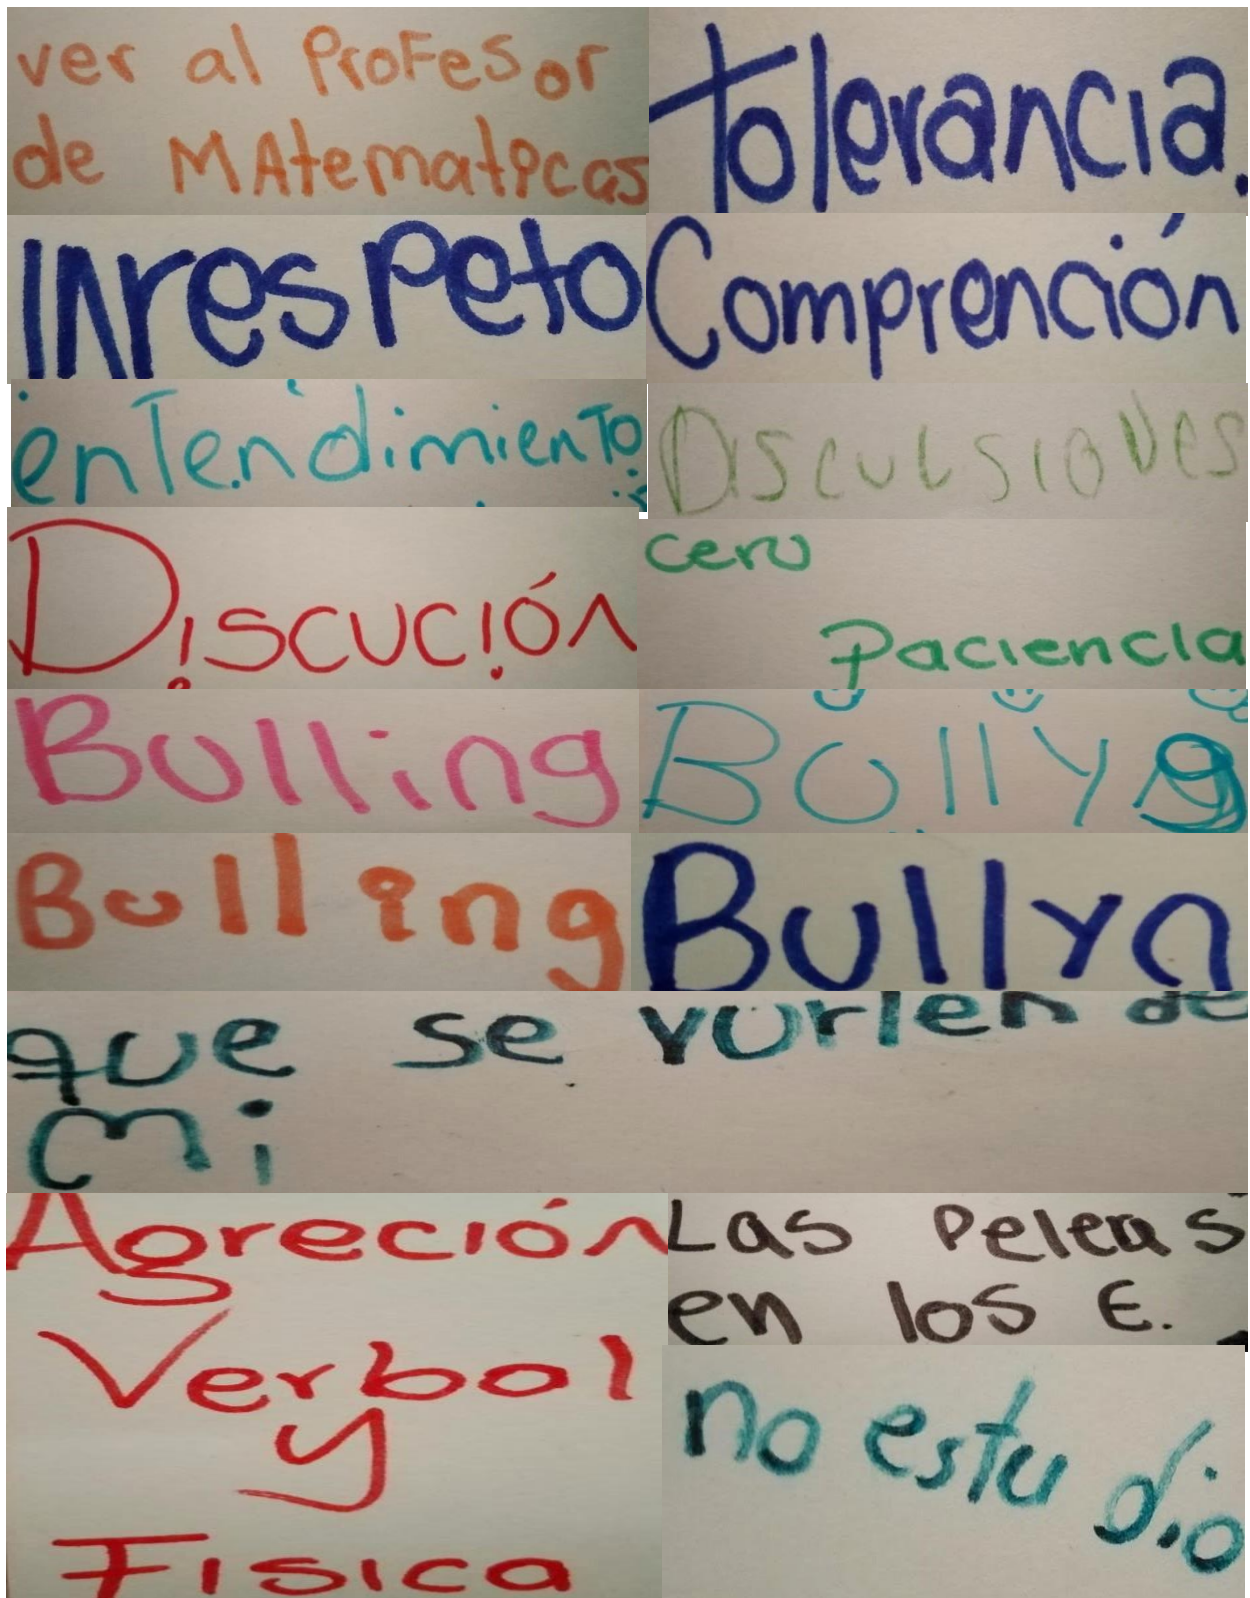 ver al Profesor
de MAtematicas
tolerancia.
Inrespeto
Comprención
entendimiento
Disculsiones
Discución
cero
paciencia
Bulling
Bullyg
Bulling
Bullyn
que se vurlen de
mi
Agreción
Verbal
y
Fisica
Las Peleas
en los E.
no estudio